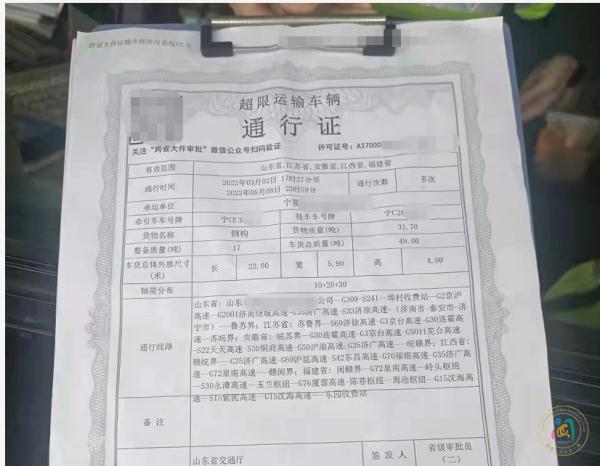 超限运输车辆
通行证
关注"跨省大件审批"微信公众号扫码验证 许可证号：A37000
有效范围 山东省,江苏省,安徽省,江西省,福建省
通行时间 2022年03月02日 17时27分至 2022年05月08日 23时59分 通行次数 多次
承运单位 宁
牵引车车号牌 宁CE3 挂车车号牌 宁C2
货物名称 钢构 货物质量(吨) 31.70
整备质量(吨) 17 车货总质量(吨) 49.00
车货总体外廓尺寸(米) 长 22.00 宽 5.90 高 4.00
轴荷分布 10+20+30
通行线路
山东省：山东 公司—G309-S241—埠村收费站—G2京沪
高速—G2001济南绕城高速-G35济广高速-S33济徐高速-（济南市-泰安市-济
宁市）—鲁苏界；江苏省：苏鲁界—S69济徐高速-G3京台高速-G30连霍高
速—苏皖界；安徽省：皖苏界—G30连霍高速-G3京台高速-G5011芜合高速
-S22天天高速-S30铜商高速-G50沪渝高速-G35济广高速—皖赣界；江西省：
赣皖界—G35济广高速-G60沪昆高速-S42东昌高速-G70福银高速-G35济广高
速—G72泉南高速—赣闽界；福建省：闽赣界—G72泉南高速—岭头枢纽
—S30永漳高速—玉兰枢纽—G76厦蓉高速-陈巷枢纽—海沧枢纽—G15沈海高
速—S15紫泥高速—G15沈海高速— 东园收费站
备注
山东省交通厅 签发人 省级审批员
（二）